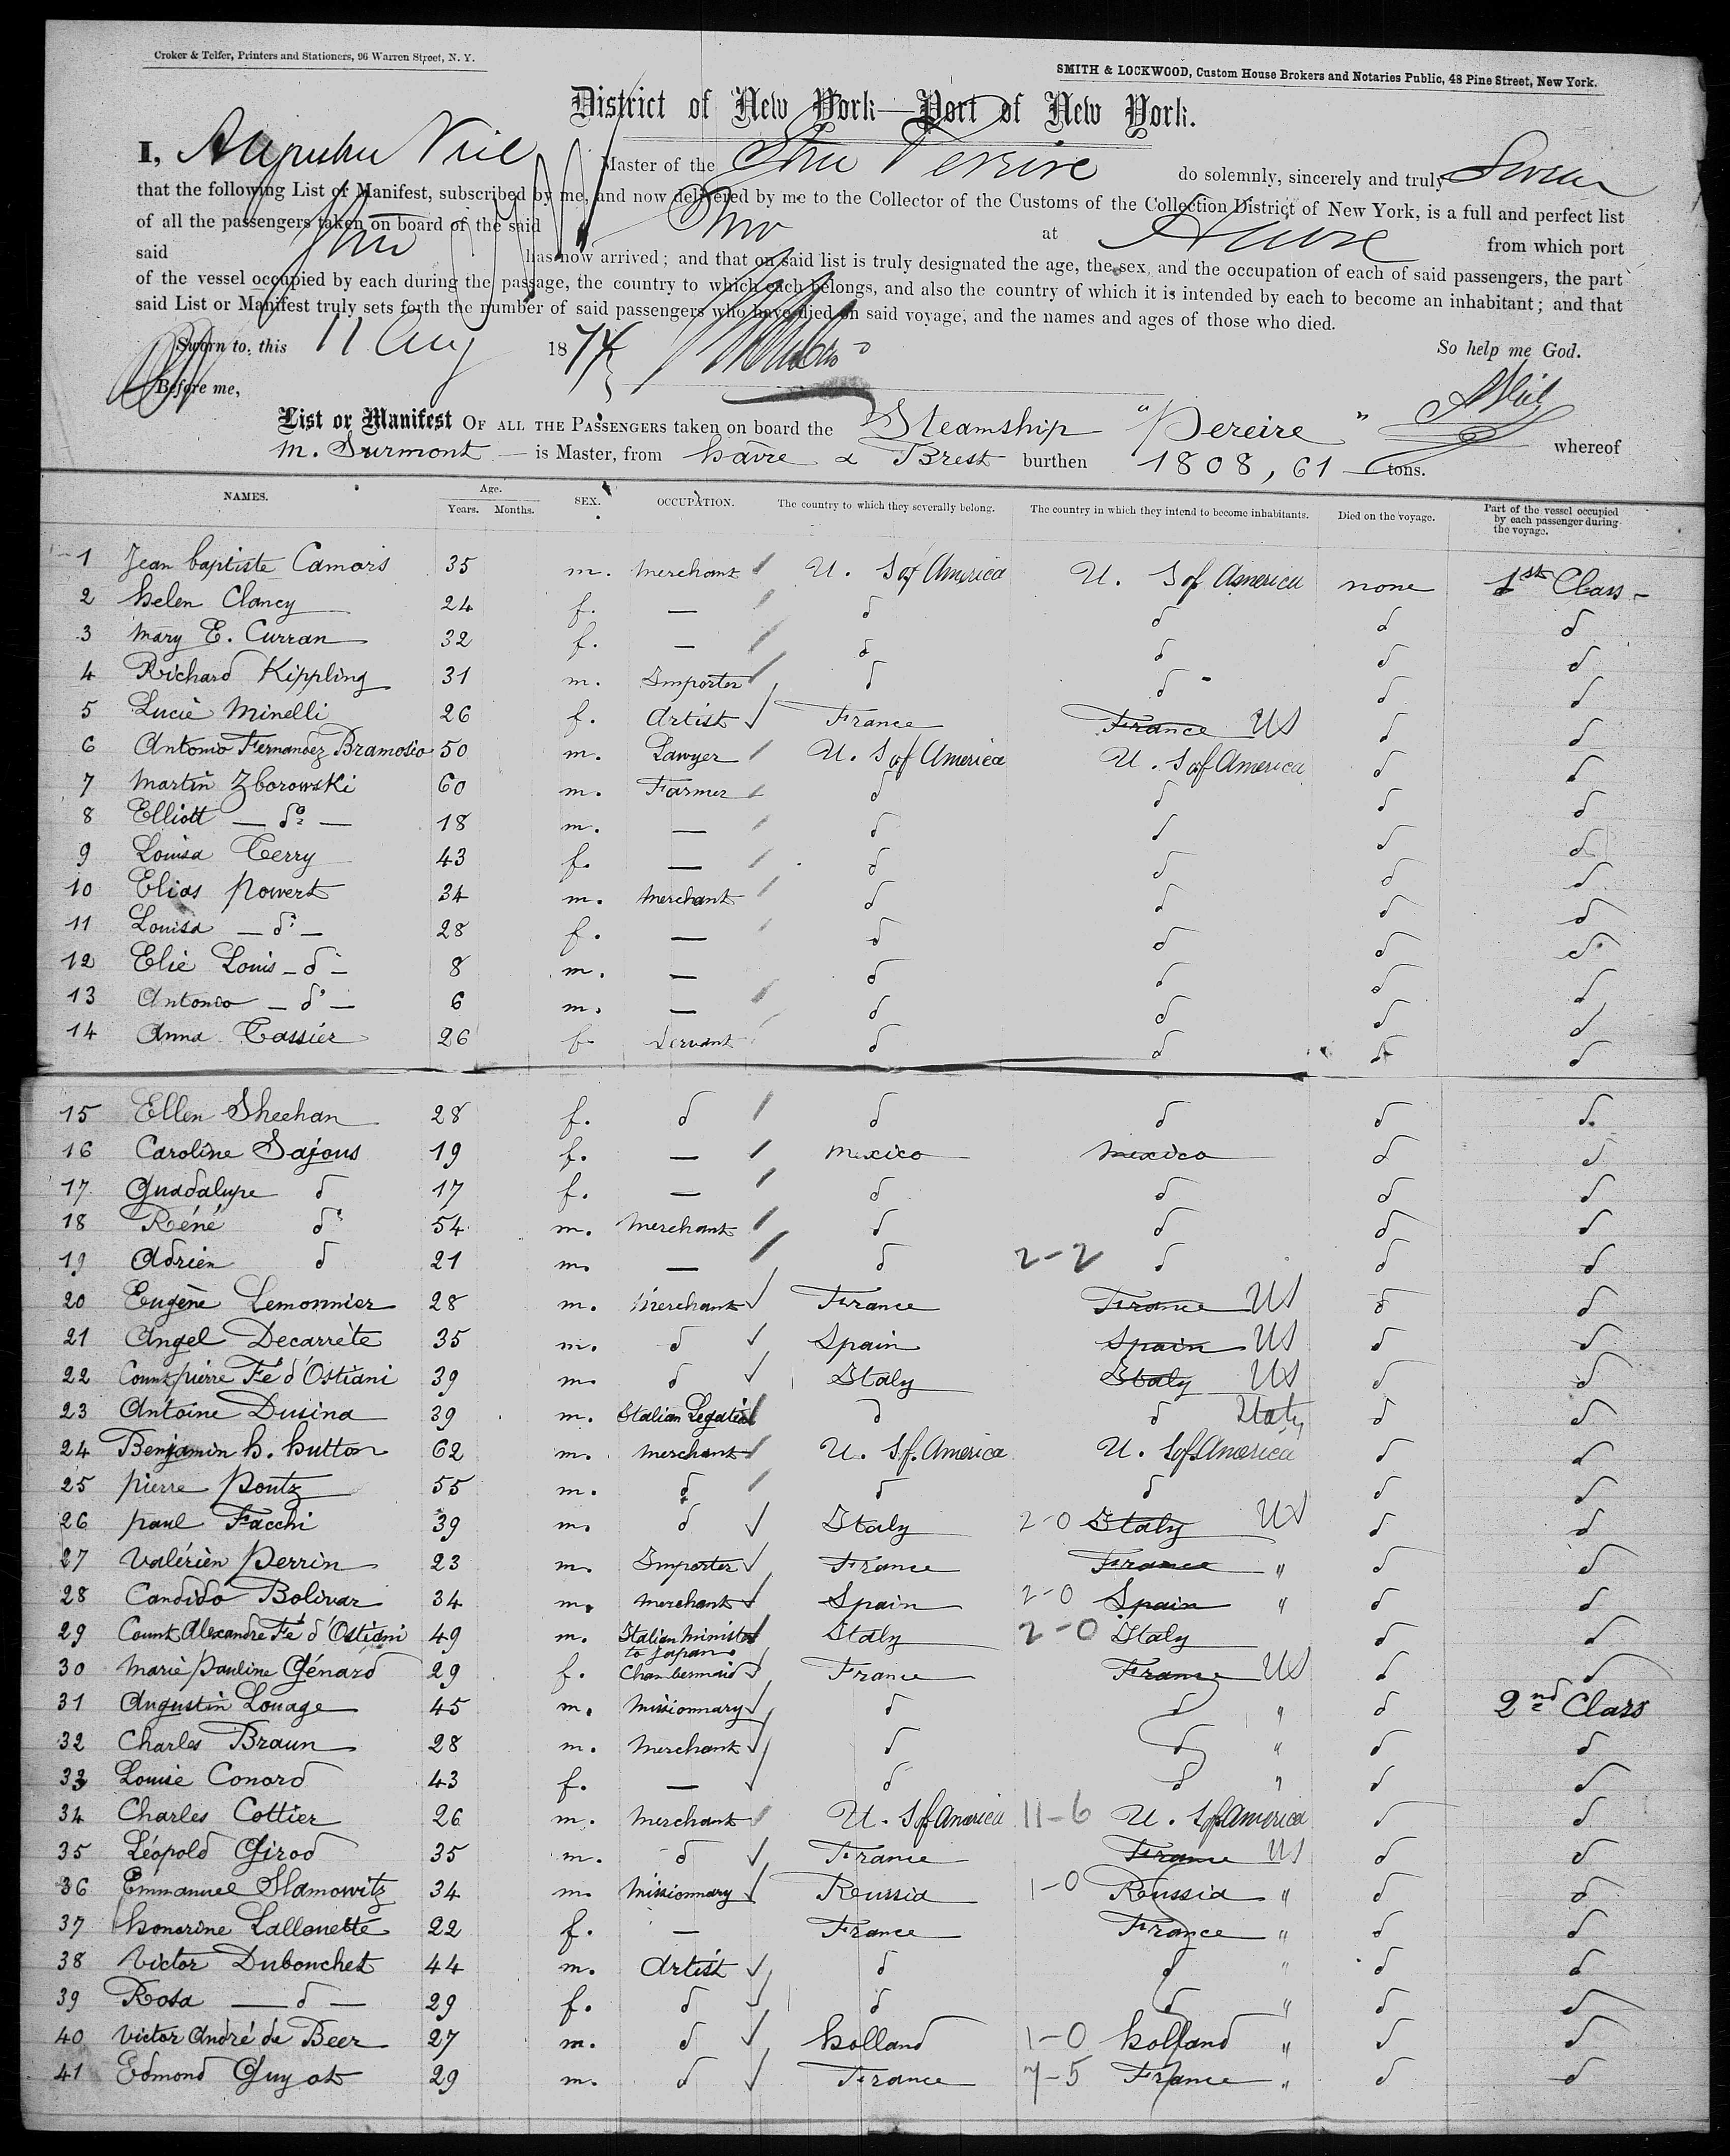 Croker & Telfer, Printers and Stationers, 96 Warren Street, N. Y.
SMITH & LOCKWOOD, Custom House Brokers and Notaries Public, 48 Pine Street, New York.
District of New York—Port of New York.
I, Master of the do solemnly, sincerely and truly Swear
that the following List or Manifest, subscribed by me, and now delivered by me to the Collector of the Customs of the Collection District of New York, is a full and perfect list
of all the passengers taken on board of the said at Havre from which port
said has now arrived; and that on said list is truly designated the age, the sex, and the occupation of each of said passengers, the part
of the vessel occupied by each during the passage, the country to which each belongs, and also the country of which it is intended by each to become an inhabitant; and that
said List or Manifest truly sets forth the number of said passengers who have died on said voyage, and the names and ages of those who died.
Sworn to, this 11 Aug 1874 So help me God.
Before me,
List or Manifest OF ALL THE PASSENGERS taken on board the Steamship "Pereire" whereof
M. Surmont is Master, from havre & Brest burthen 1808,61 tons.
NAMES. Age. Years. Months. SEX. OCCUPATION. The country to which they severally belong. The country in which they intend to become inhabitants. Died on the voyage. Part of the vessel occupied by each passenger during the voyage.
1 Jean baptiste Camors 35 m. Merchant U. S of America U. S of America none 1st Class
2 helen Clancy 24 f. — d d d d
3 Mary E. Curran 32 f. — d d d d
4 Richard Kippling 31 m. Importer d d d d
5 Lucie Minelli 26 f. Artist France France US d d
6 Antonio Fernandez Bramosio 50 m. Lawyer U. S of America U. S of America d d
7 Martin Zborowski 60 m. Farmer d d d d
8 Elliott — do — 18 m. — d d d d
9 Louisa Terry 43 f. — d d d d
10 Elias Powert 34 m. Merchant d d d d
11 Louisa — d — 28 f. — d d d d
12 Elie Louis — d — 8 m. — d d d d
13 Antonio — d — 6 m. — d d d d
14 Anna Tassier 26 f. Servant d d d d
15 Ellen Sheehan 28 f. d d d d d
16 Caroline Sajous 19 f. — Mexico Mexico d d
17 Guadalupe d 17 f. — d d d d
18 Réné d 54 m. Merchant d d d d
19 Adrien d 21 m. — d 2-2 d d d
20 Eugène Lemonnier 28 m. Merchant France France US d d
21 Angel Decarrète 35 m. d Spain Spain US d d
22 Count pierre Fé d'Ostiani 39 m. d Italy Italy US d d
23 Antoine Dusina 39 m. Italian Legation d d Italy d d
24 Benjamin h. hutton 62 m. Merchant U. S of. America U. S of America d d
25 pierre Pontz 55 m. d d d d d
26 paul Facchi 39 m. d Italy 2-0 Italy US d d
27 Valérien Perrin 23 m. Importer France France " d d
28 Candido Bolivar 34 m. Merchant Spain 2-0 Spain " d d
29 Count Alexandre Fé d'Ostiani 49 m. Italian Minister to Japan Italy 2-0 Italy d d
30 Marie Pauline Génard 29 f. Chambermaid France France US d d
31 Augustin Louage 45 m. Missionnary d d " d 2nd Class
32 Charles Braun 28 m. Merchant d d " d d
33 Louise Conard 43 f. — d d " d d
34 Charles Cottier 26 m. Merchant U. S of America 11-6 U. S of America d d
35 Léopold Girod 35 m. d France France US d d
36 Emmanuel Slamowitz 34 m. Missionnary Russia 1-0 Russia " d d
37 honorine Lallouette 22 f. — France France " d d
38 Victor Dubouchet 44 m. Artist d d " d d
39 Rosa — d — 29 f. d d d " d d
40 Victor André de Beer 27 m. d holland 1-0 holland " d d
41 Edmond Guyot 29 m. d France 7-5 France " d d